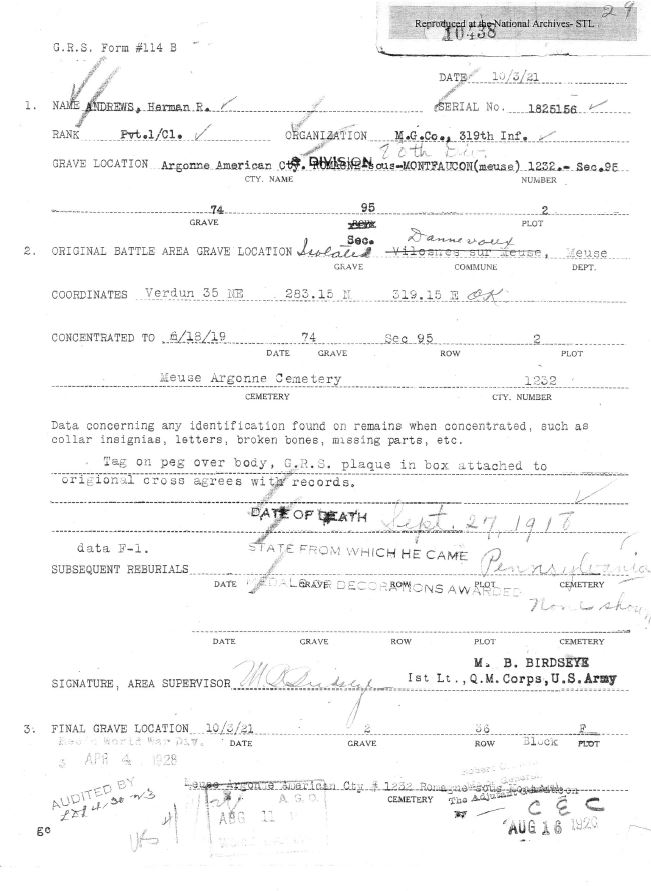 29
Reproduced at the National Archives- STL
10438
G.R.S. Form #114 B
DATE 10/3/21
1. NAME ANDREWS, Herman R. SERIAL No. 1825156
RANK Pvt.1/Cl. ORGANIZATION M.G.Co., 319th Inf.
DIVISION
GRAVE LOCATION Argonne American Cty. ROMAGNE-sous-MONTFAUCON(meuse) 1232.- Sec.95
CTY. NAME NUMBER
74 95 2
GRAVE ROW PLOT
Sec. Dannevoux
2. ORIGINAL BATTLE AREA GRAVE LOCATION Isolated Vilosnes sur Meuse, Meuse
GRAVE COMMUNE DEPT.
COORDINATES Verdun 35 NE 283.15 N 319.15 E OK
CONCENTRATED TO 6/18/19 74 Sec 95 2
DATE GRAVE ROW PLOT
Meuse Argonne Cemetery 1232
CEMETERY CTY. NUMBER
Data concerning any identification found on remains when concentrated, such as
collar insignias, letters, broken bones, missing parts, etc.
Tag on peg over body, G.R.S. plaque in box attached to
origional cross agrees with records.
DATE OF DEATH Sept. 27, 1918
data F-1. STATE FROM WHICH HE CAME Pennsylvania
SUBSEQUENT REBURIALS
DATE GRAVE ROW PLOT CEMETERY
MEDALS OR DECORATIONS AWARDED
None shown
DATE GRAVE ROW PLOT CEMETERY
M. B. BIRDSEYE
SIGNATURE, AREA SUPERVISOR 1st Lt., Q.M. Corps, U.S. Army
3. FINAL GRAVE LOCATION 10/3/21 2 36 F
DATE GRAVE ROW Block PLOT
World War Div.
APR 4 1928
Meuse Argonne American Cty # 1232 Romagne sous
CEMETERY
The Adjutant General
AUDITED BY
A.G.O.
AUG 11
C E C
AUG 16 1929
gc